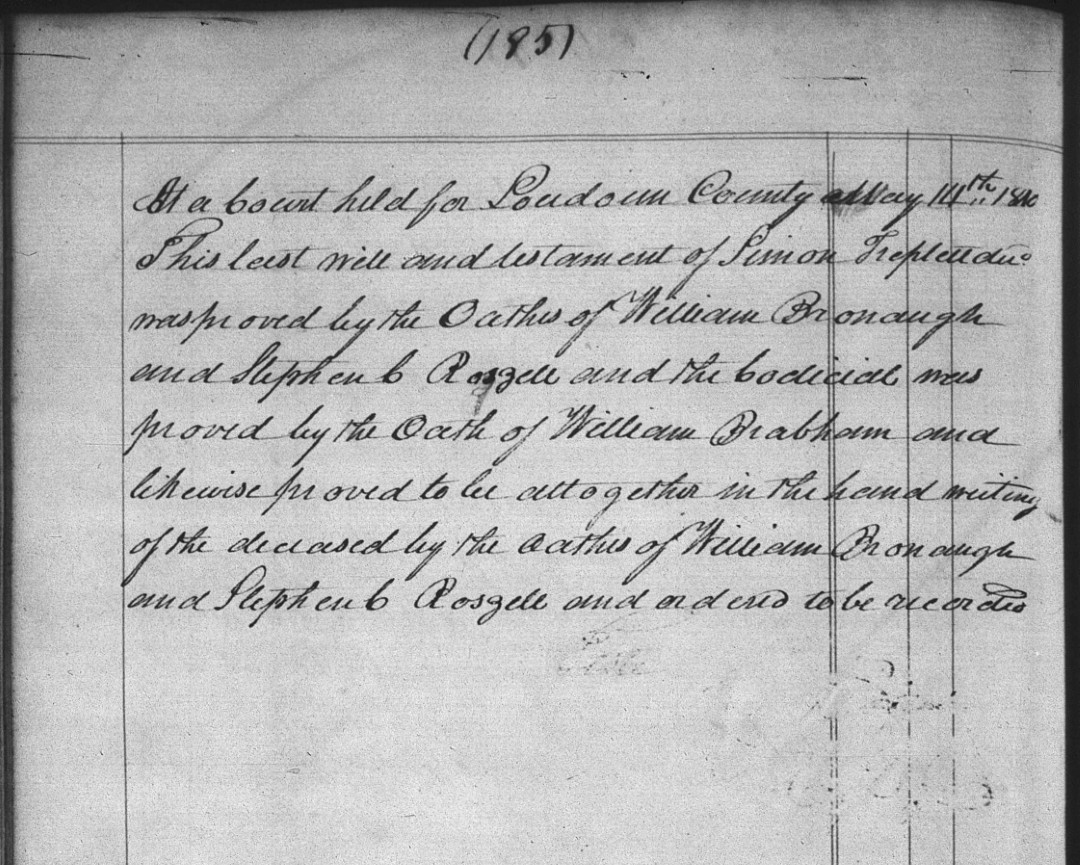 (185)
At a Court held for Loudoun County May 14th 1810
This last will and testament of Simon Triplett decd
was proved by the Oathes of William Bronaugh
and Stephen C Roszell and the Codicial was
proved by the Oath of William Brabham and
likewise proved to be alltogether in the hand writing
of the deceased by the oathes of William Bronaugh
and Stephen C Roszell and ordered to be recorded